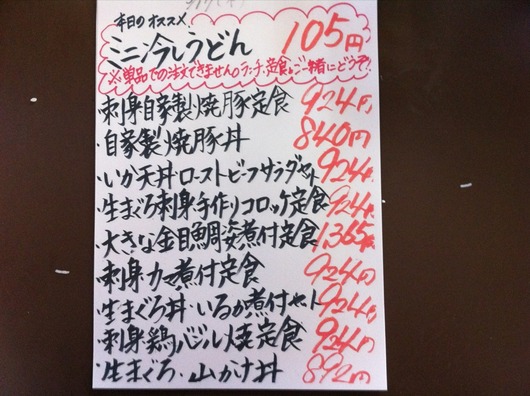 本日のオススメ!
ミニ冷しうどん 105円
※単品での注文できません。ランチ、定食とご一緒にどうぞ!
・刺身自家製焼豚定食 924円
・自家製焼豚丼 840円
・いか天丼・ローストビーフサラダセット 924円
・生まぐろ刺身手作りコロッケ定食 924円
・大きな金目鯛姿煮付定食 1,365円
・刺身・カマ煮付定食 924円
・生まぐろ丼・いるか煮付セット 924円
・刺身鶏バジル焼定食 924円
・生まぐろ・山かけ丼 892円